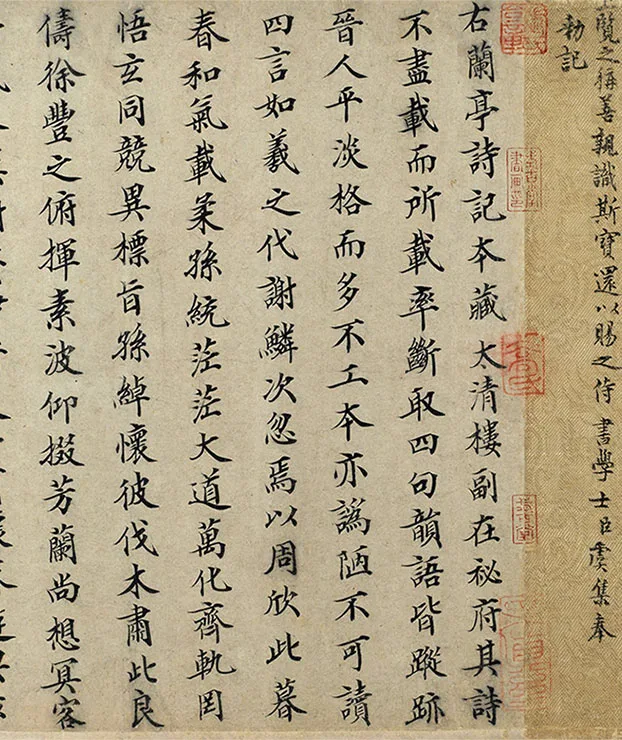 覽之稱善親識斯寶還以賜之侍書學士臣虞集奉
勅記
右蘭亭詩記本藏太清樓副在祕府其詩
不盡載而所載率斷取四句韻語皆蹤跡
晉人平淡格而多不工本亦譌陋不可讀
四言如羲之代謝鱗次忽焉以周欣此暮
春和氣載柔孫統茫茫大道萬化齊軌罔
悟玄同競異標旨孫綽懷彼伐木肅此良
儔徐豐之俯揮素波仰掇芳蘭尚想冥客